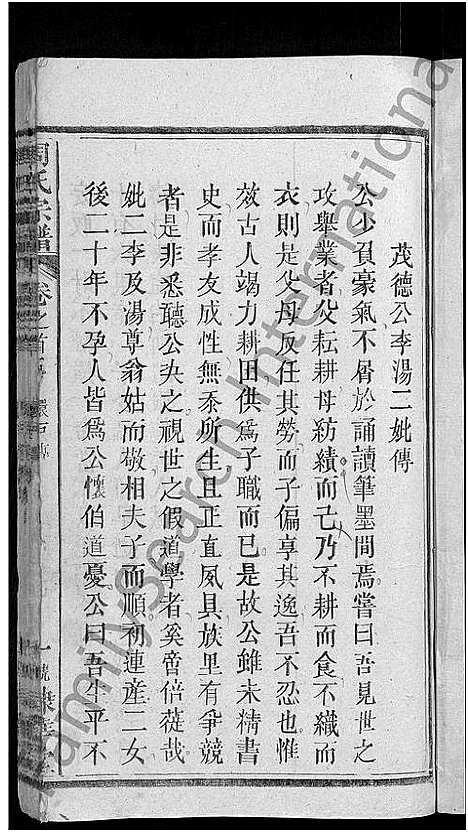 茂德公李湯二妣傳
公少負豪氣不屑於誦讀筆墨間焉嘗曰吾見世之
攻舉業者父耘耕母紡績而己乃不耕而食不織而
衣則是父母反任其勞而子偏享其逸吾不忍也惟
效古人竭力耕田供為子職而已是故公雖未精書
史而孝友成性無忝所生且正直夙具族里有爭競
者是非悉聽公夬之視世之假道學者奚啻倍蓰哉
妣二李及湯尊翁姑而敬相夫子而順初連産二女
後二十年不孕人皆爲公懷伯道憂公曰吾生平不
周氏宗譜
卷之首
familysearch International